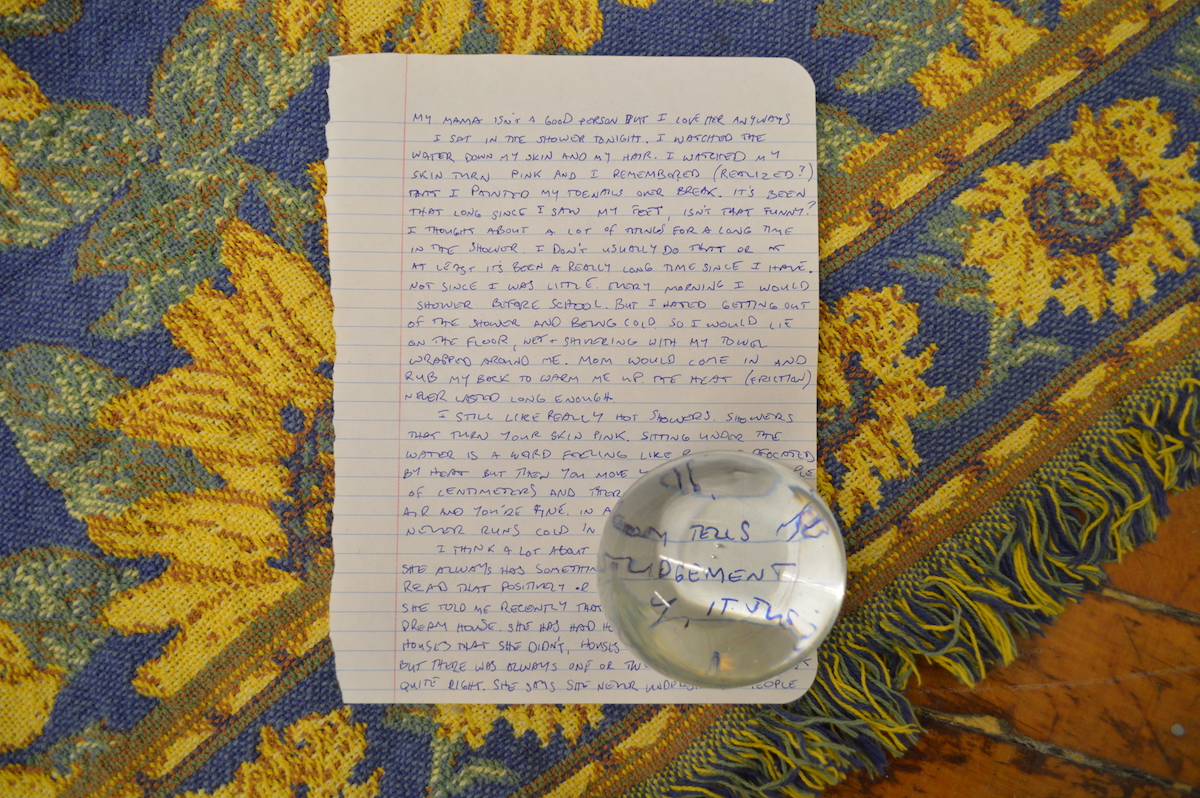 MY MAMA ISN'T A GOOD PERSON BUT I LOVE HER ANYWAYS
I SAT IN THE SHOWER TONIGHT. I WATCHED THE
WATER DOWN MY SKIN AND MY HAIR. I WATCHED MY
SKIN TURN PINK AND I REMEMBERED (REALIZED?)
THAT I PAINTED MY TOENAILS OVER BREAK. IT'S BEEN
THAT LONG SINCE I SAW MY FEET, ISN'T THAT FUNNY?
I THOUGHT ABOUT A LOT OF THINGS FOR A LONG TIME
IN THE SHOWER. I DON'T USUALLY DO THAT OR
AT LEAST IT'S BEEN A REALLY LONG TIME SINCE I HAVE.
NOT SINCE I WAS LITTLE. EVERY MORNING I WOULD
SHOWER BEFORE SCHOOL. BUT I HATED GETTING OUT
OF THE SHOWER AND BEING COLD, SO I WOULD LIE
ON THE FLOOR, WET + SHIVERING WITH MY TOWEL
WRAPPED AROUND ME. MOM WOULD COME IN AND
RUB MY BACK TO WARM ME UP THE HEAT (FRICTION)
NEVER LASTED LONG ENOUGH
I STILL LIKE REALLY HOT SHOWERS. SHOWERS
THAT TURN YOUR SKIN PINK. SITTING UNDER THE
WATER IS A WEIRD FEELING LIKE
BY HEAT BUT THEN YOU MOVE
OF CENTIMETERS AND
AIR AND YOU'RE FINE. IN A
NEVER RUNS COLD IN
TELLS
I THINK A LOT ABOUT
JUDGEMENT
SHE ALWAYS HAS
, IT
READ THAT POSITIVELY OR
SHE TOLD ME RECENTLY THAT
DREAM HOUSE. SHE HAS HAD
HOUSES THAT SHE DIDN'T, HOUSES
BUT THERE WAS ALWAYS ONE OR
QUITE RIGHT. SHE SAYS SHE NEVER PEOPLE